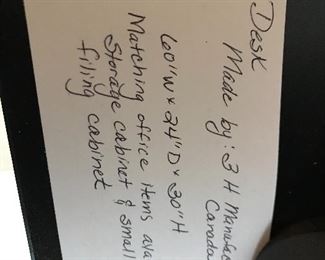 Desk
Made by: 3 H Manufac
Canada
60"W x 24"D x 30"H
Matching office items ava
Storage cabinet & small
filing cabinet